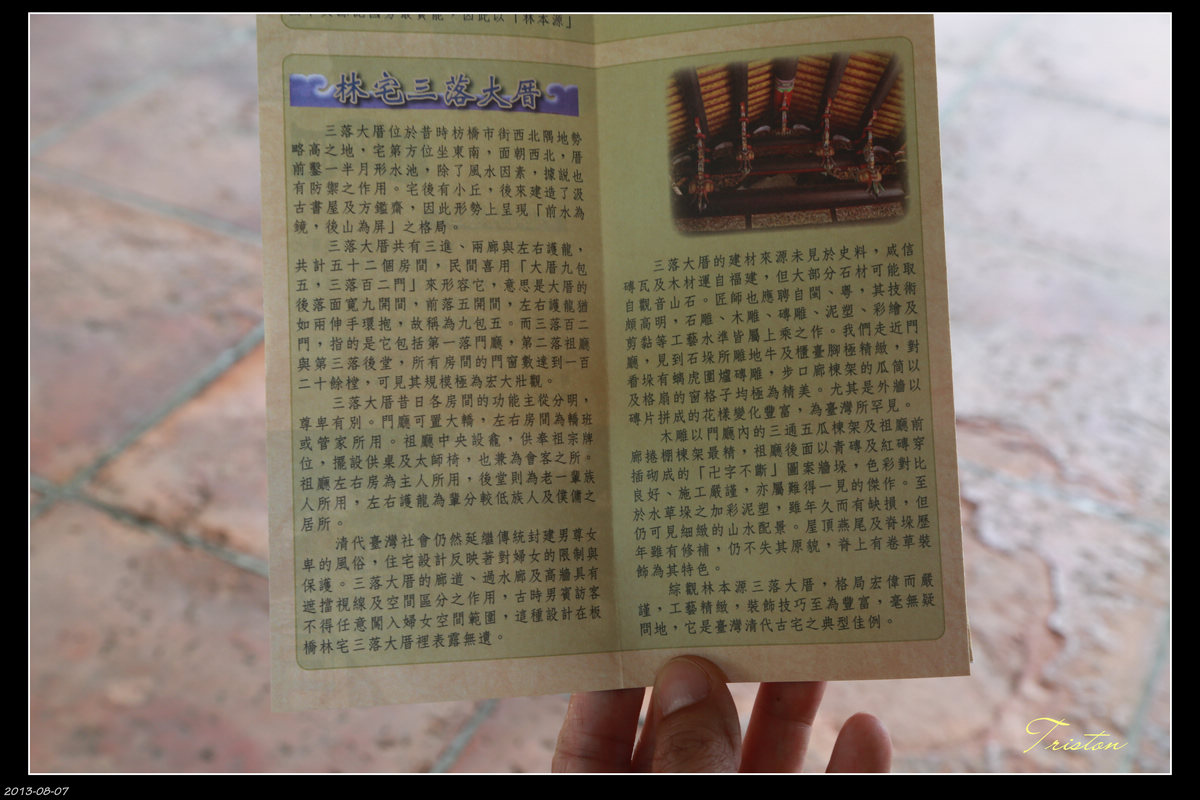 林宅三落大厝
三落大厝位於昔時枋橋市街西北隅地勢
略高之地，宅第方位坐東南，面朝西北，厝
前鑿一半月形水池，除了風水因素，據說也
有防禦之作用。宅後有小丘，後來建造了汲
古書屋及方鑑齋，因此形勢上呈現「前水為
鏡，後山為屏」之格局。
三落大厝共有三進、兩廊與左右護龍，
共計五十二個房間，民間喜用「大厝九包
五，三落百二門」來形容它，意思是大厝的
後落面寬九開間，前落五開間，左右護龍猶
如兩伸手環抱，故稱為九包五。而三落百二
門，指的是它包括第一落門廳，第二落祖廳
與第三落後堂，所有房間的門窗數達到一百
二十餘樘，可見其規模極為宏大壯觀。
三落大厝昔日各房間的功能主從分明，
尊卑有別。門廳可置大轎，左右房間為轎班
或管家所用。祖廳中央設龕，供奉祖宗牌
位，擺設供桌及太師椅，也兼為會客之所。
祖廳左右房為主人所用，後堂則為老一輩族
人所用，左右護龍為輩分較低族人及僕傭之
居所。
清代臺灣社會仍然延繼傳統封建男尊女
卑的風俗，住宅設計反映著對婦女的限制與
保護。三落大厝的廊道、過水廊及高牆具有
遮擋視線及空間區分之作用，古時男賓訪客
不得任意闖入婦女空間範圍，這種設計在板
橋林宅三落大厝裡表露無遺。
三落大厝的建材來源未見於史料，咸信
磚瓦及木材運自福建，但大部分石材可能取
自觀音山石。匠師也應聘自閩、粵，其技術
頗高明，石雕、木雕、磚雕、泥塑、彩繪及
剪黏等工藝水準皆屬上乘之作。我們走近門
廳，見到石垛所雕地牛及櫃臺腳極精緻，對
看垛有螭虎圍爐磚雕，步口廊棟架的瓜筒以
及格扇的窗格子均極為精美。尤其是外牆以
磚片拼成的花樣變化豐富，為臺灣所罕見。
木雕以門廳內的三通五瓜棟架及祖廳前
廊捲棚棟架最精，祖廳後面以青磚及紅磚穿
插砌成的「卍字不斷」圖案牆垛，色彩對比
良好、施工嚴謹，亦屬難得一見的傑作。至
於水草垛之加彩泥塑，雖年久而有缺損，但
仍可見細緻的山水配景。屋頂燕尾及脊垛歷
年雖有修補，仍不失其原貌，脊上有卷草裝
飾為其特色。
綜觀林本源三落大厝，格局宏偉而嚴
謹，工藝精緻，裝飾技巧至為豐富，毫無疑
問地，它是臺灣清代古宅之典型佳例。
Triston
2013-08-07